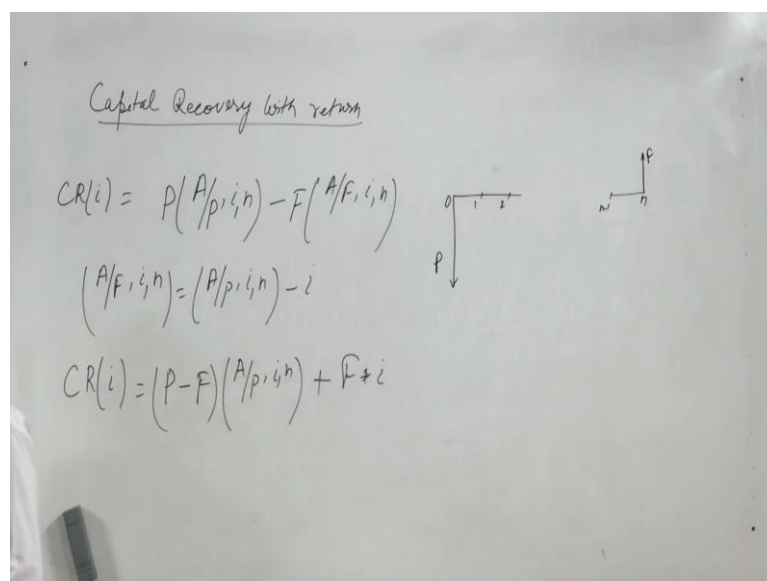 Capital Recovery with return
CR(i) = P(A/P, i, n) - F(A/F, i, n)
(A/F, i, n) = (A/P, i, n) - i
CR(i) = (P-F)(A/P, i, n) + F*i
0 1 2
P
n-1 n
F